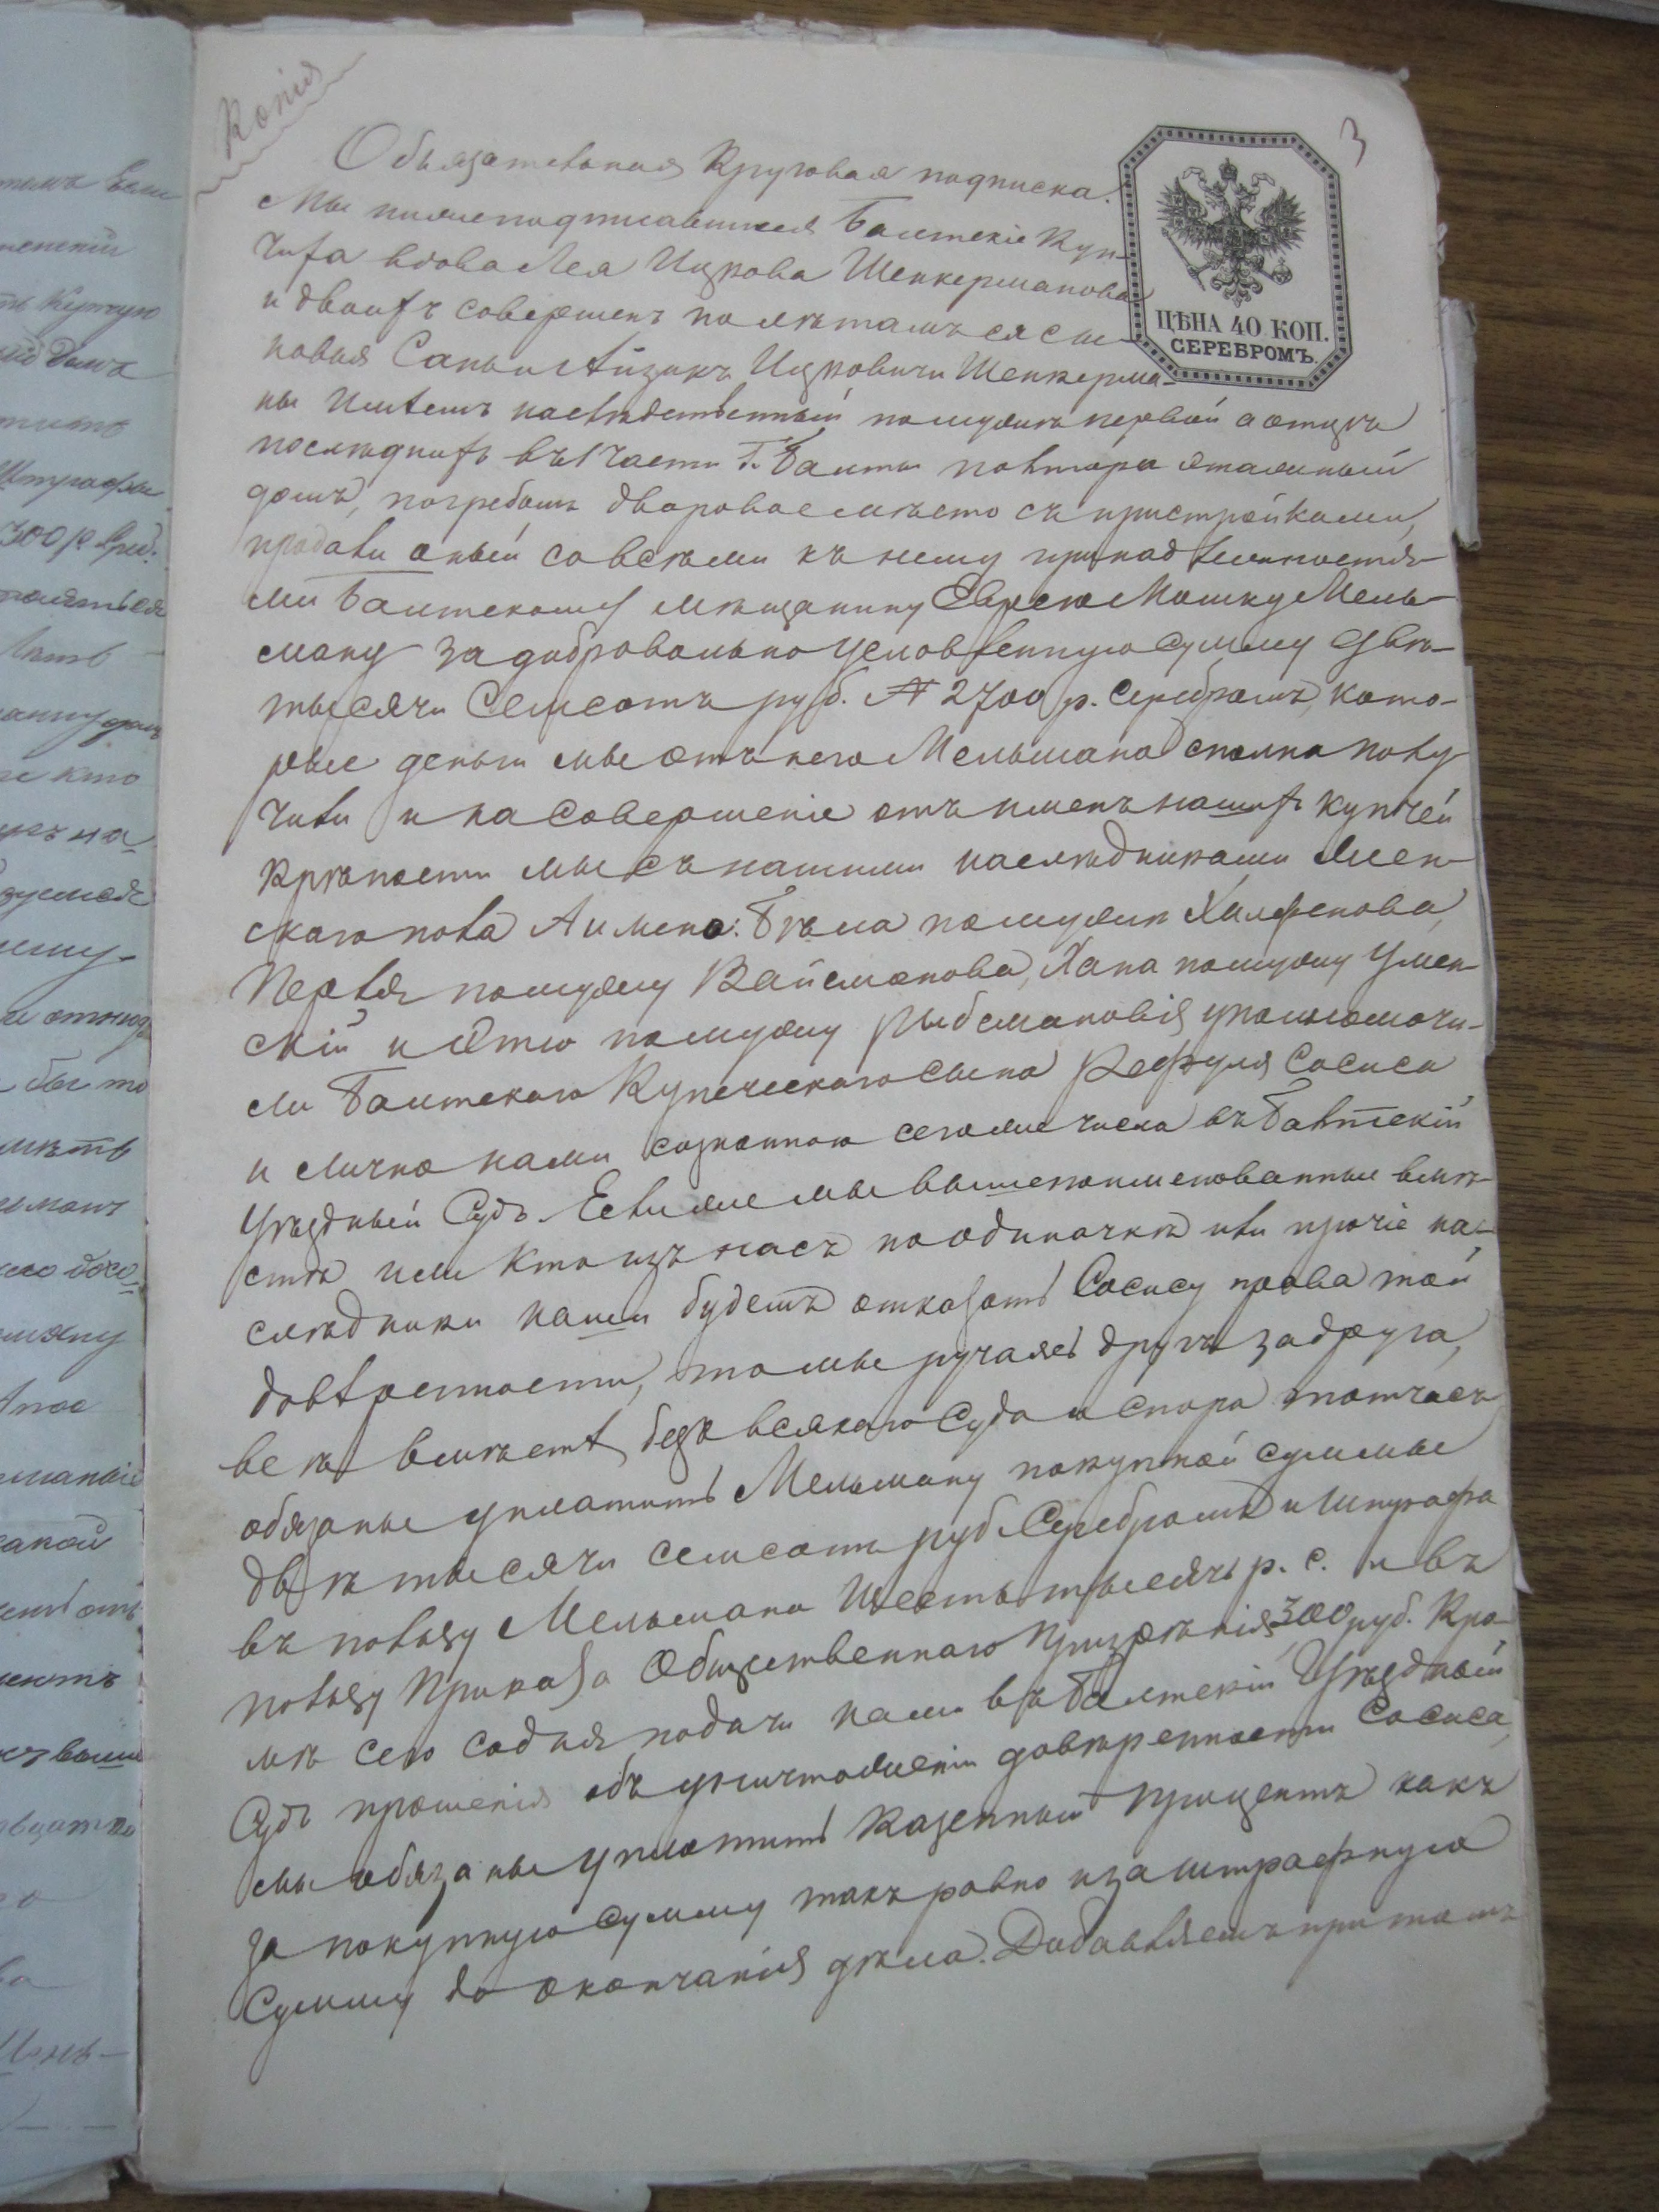 Копія
3
Обязательная Круговая подписка.
Мы нижеподписавшіяся Балтскіе Куп-
чиха вдова Лея Ицкова Шенкерманова
и двоихъ совершен. по лѣтамъ ея сы-
новья Сапы и Айзикъ Ицковичи Шенкерма-
ны Имѣемъ наслѣдственный по мужѣ первой а отцѣ
послѣднихъ въ 1 части Г. Балты полтора этажный
домъ, погребомъ дворовое мѣсто съ пристройками,
продали оный со всѣми къ нему принадлежностя-
ми Балтскому мѣщанину Еврею Мошку Мель-
ману за добровольно условленную сумму Двѣ
тысячи Семсотъ руб. № 2700 р. Серебромъ, кото-
рые деньги мы отъ него Мельмана сполна полу-
чили и на совершеніе отъ именъ нашихъ купчей
крѣпости мы съ нашими наслѣдниками жен-
скаго пола А имено: Бѣла по мужѣ
Перля по мужу Вайсманова, Хана по мужу Умен-
скій и Этю по мужу упольномочи-
ли Балтскаго Купеческаго сына Рефуля Сосиса
и лично нами сознанною сегоже числа въ Балтскій
Уѣздный Судъ. Если же мы вышепоименованные вмѣ-
стѣ или Кто изъ насъ по одиночкѣ или прочіе на-
слѣдники наши будетъ отказать Сосису права той
довѣренности, то мы ручаясь другъ за друга,
всѣ вмѣстѣ безъ всякаго Суда и спора тотчасъ
обязаны уплатить Мельману покупной суммы
двѣ тысячи семсотъ руб. Серебромъ и Штрафа
въ пользу Мельмана Шесть тысячъ р. с. и въ
пользу Приказа Общественнаго Призрѣнія 300 руб. Кро-
мѣ сего со дня подачи нами въ Балтскій Уѣздный
Судъ прошенія объ уничтоженіи довѣренности Сосиса,
мы обязаны уплатить казенный процентъ какъ
за покупную сумму такъ равно и за штрафную
Сумму до окончанія дѣла. Добавляемъ при томъ
ЦѢНА 40 КОП.
СЕРЕБРОМЪ.